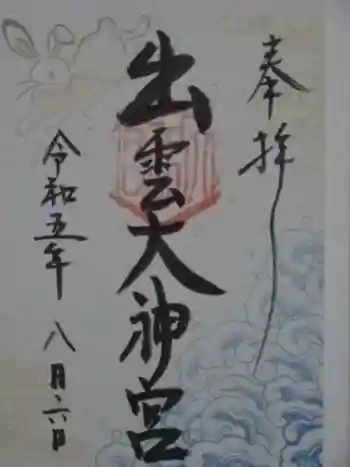 奉拝
出雲大神宮
令和五年 八月六日